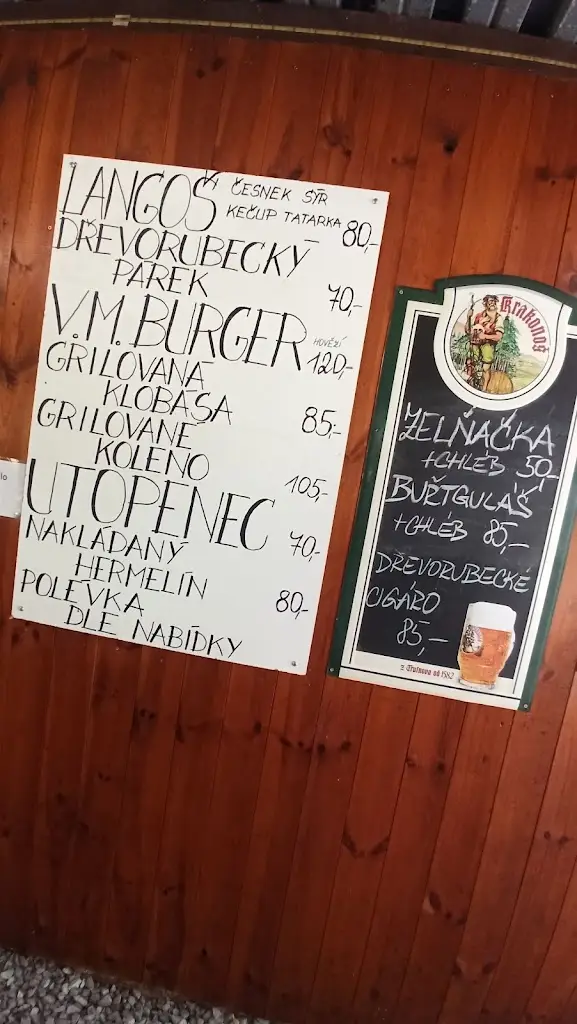 LANGOŠ ČESNEK SÝR
KEČUP TATARKA 80,-
DŘEVORUBECKÝ
PÁREK 70,-
V.M. BURGER HOVĚZÍ 120,-
GRILOVANÁ
KLOBÁSA 85,-
GRILOVANÉ
KOLENO 105,-
UTOPENEC 70,-
NAKLÁDANÝ
HERMELÍN 80,-
POLÉVKA
DLE NABÍDKY
Krakonoš
ZELŇAČKA
+CHLÉB 50,-
BUŘTGULÁŠ
+CHLÉB 85,-
DŘEVORUBECKÉ
CIGÁRO
85,-
z Trutnova od 1582